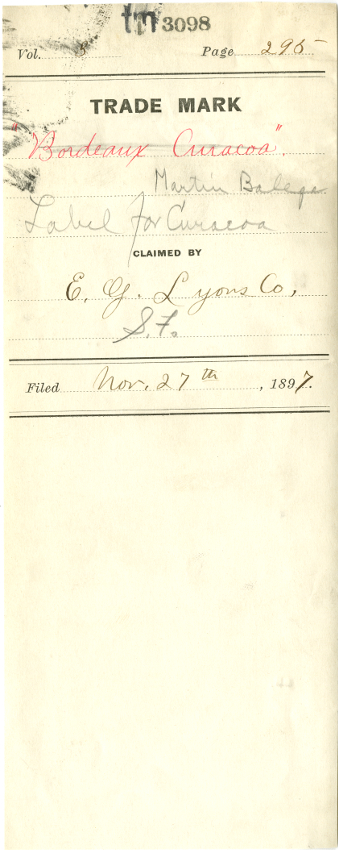 tm 3098
Vol. 8 Page 295
TRADE MARK
"Bordeaux Curacoa".
Martin
Label for Curacoa
CLAIMED BY
E. G. Lyons Co,
S.F.
Filed Nov. 27th, 1897.